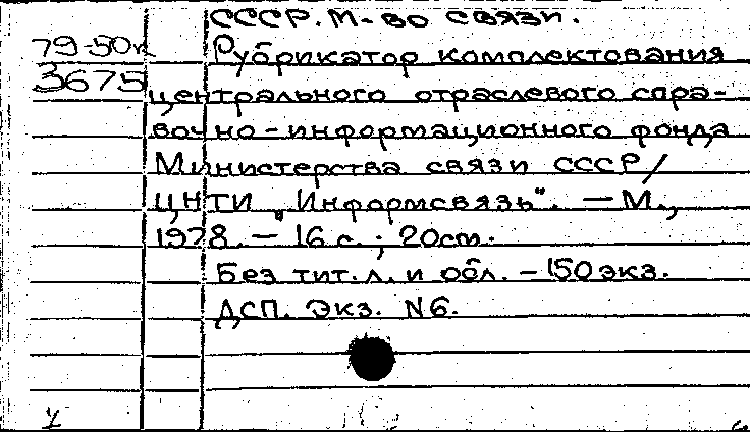 СССР. М-во связи.
79-50к
Рубрикатор комплектования
3675
центрального отраслевого спра-
вочно-информационного фонда
Министерства связи СССР/
ЦНТИ „Информсвязь". — М.,
1978. — 16 с. ; 20 см.
Без тит. л. и обл. — 150 экз.
ДСП. Экз. N6.